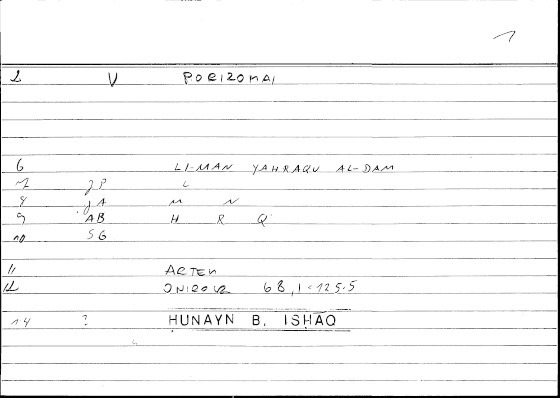 1
2 V PORIZOMAI
6 LI-MAN YAHRAQU AL-DAM
7 JP L
8 JA M N
9 AB H R Q
10 SG
11 ARTEM
12 ONIROCR 68,1 = 125.5
14 ? HUNAYN B. ISHAQ